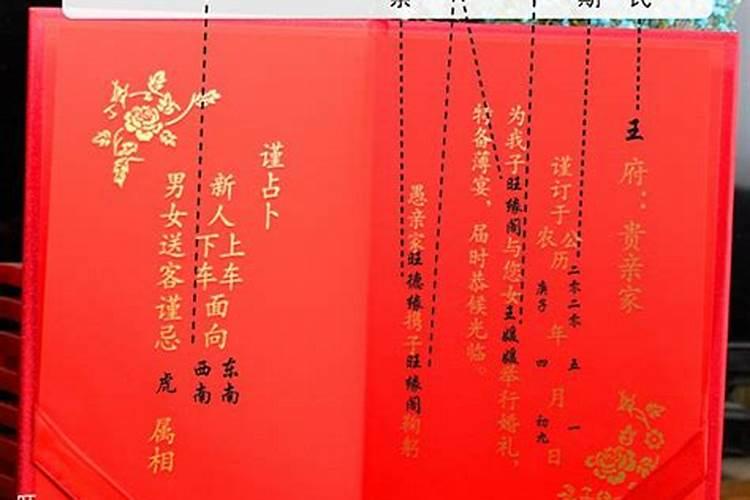 王府：贵亲家
谨订于公历二零二零年五月一日
农庚子四初九
为我子旺缘阁与您女王媛媛举行婚礼，
特备薄宴，届时恭候光临。
愚亲家旺德缘携子旺缘阁鞠躬
谨占卜
新人上车面向东南
下车西南
男女送客谨忌虎属相